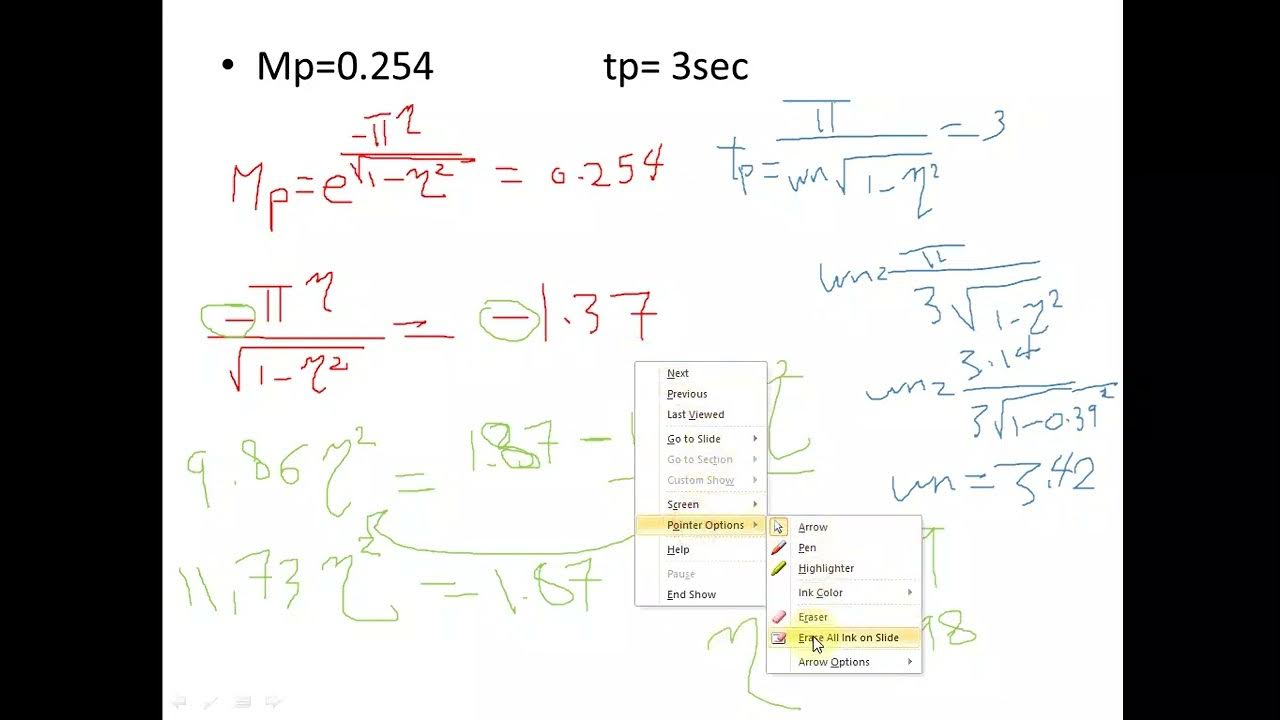 • Mp=0.254 tp= 3sec
Mp = e^(-πη/√1-η²) = 0.254
tp = π/(wn√1-η²) = 3
-πη/√1-η² = -1.37
wn = π/(3√1-η²)
wn = 3.14/(3√1-0.39²)
wn = 3.42
9.86η² = 1.87 -
11,73η² = 1.87
η
98
Next
Previous
Last Viewed
Go to Slide
Go to Section
Custom Show
Screen
Pointer Options
Help
Pause
End Show
Arrow
Pen
Highlighter
Ink Color
Eraser
Erase All Ink on Slide
Arrow Options